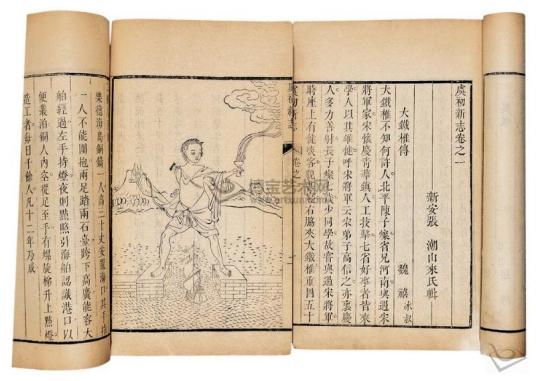 虞初新志卷之一
新安張　潮山來氏輯
大鐵椎傳
魏禧　冰叔
大鐵椎不知何許人北平陳子燦省兄河南與遇宋
將軍家宋懷慶青華鎮人工技擊七省好事者皆來
學人以其雄健呼宋將軍云宋弟子高信之亦懷慶
人多力善射長子燦七歲少同學故嘗與過宋將軍
時座上有健啖客貌甚寢右脅夾大鐵椎重四五十
虞初新志　卷之一
樂德海島銅鑄一人高二十丈安置海口其手指
一人不能圍抱兩足踏兩石臺跨下高廣能容大
舶經過左手持燈夜則點照引海舶認識港口以
便叢泊銅人內空從足至手有螺旋梯升上點燈
造工者每日千餘人凡十二年乃成